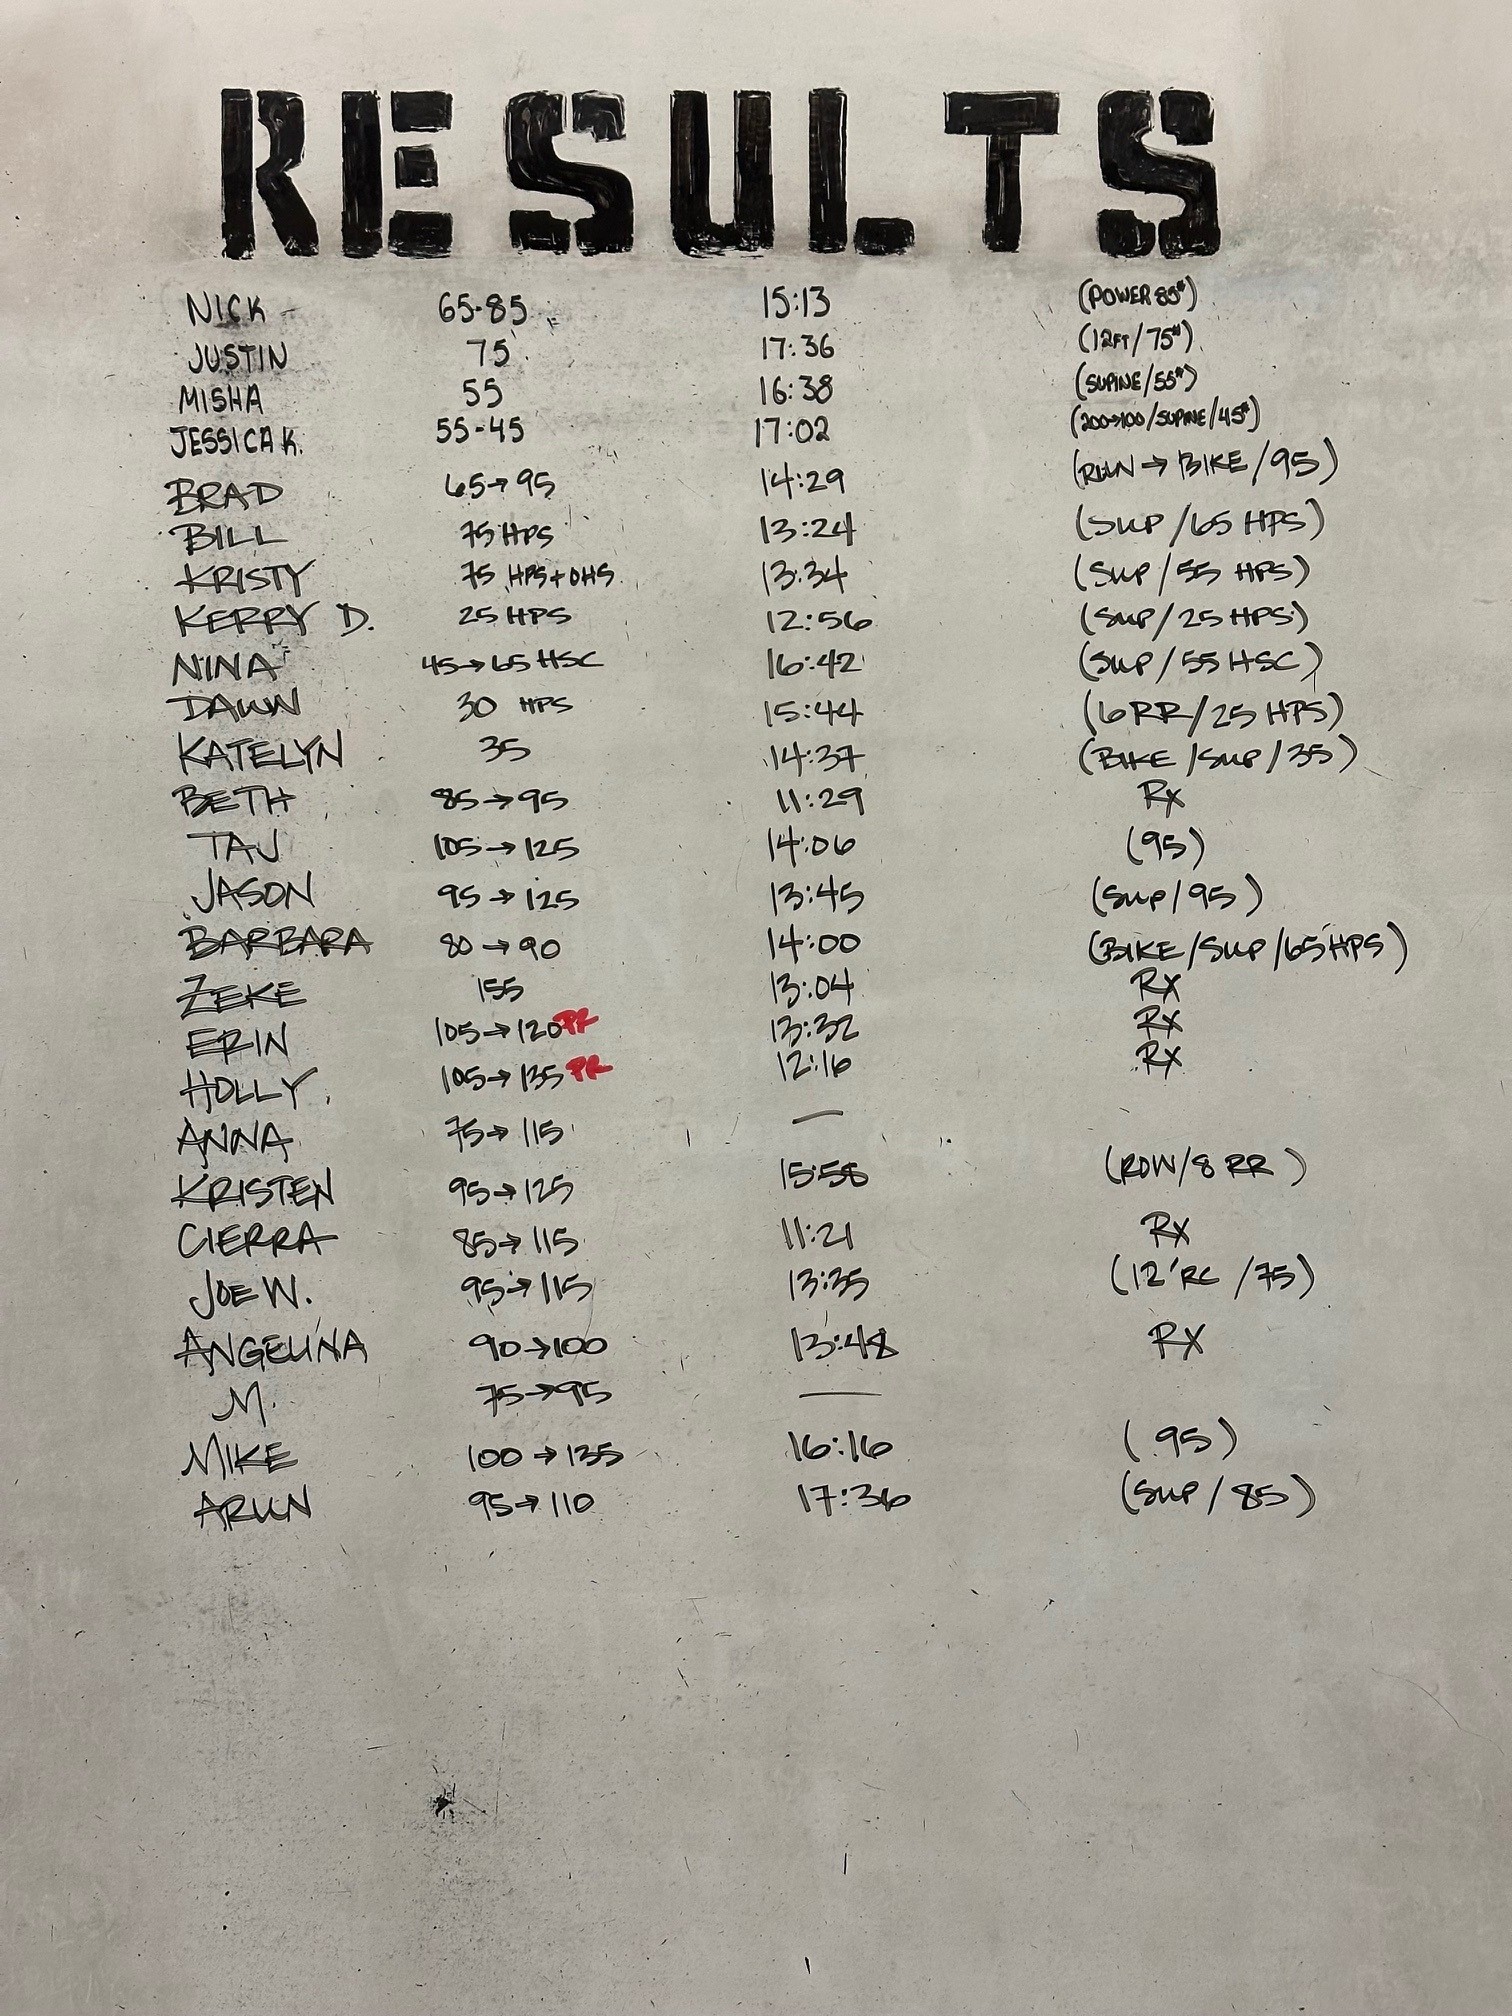 RESULTS
NICK 65-85 15:13 (POWER 85#)
JUSTIN 75 17:36 (12FT/75#)
MISHA 55 16:38 (SUPINE/55#)
JESSICA K. 55-45 17:02 (200→100/SUPINE/45#)
BRAD 65→95 14:29 (RUN→BIKE/95)
BILL 75 HPS 13:24 (SUP/65 HPS)
KRISTY 75 HPS+OHS 13:34 (SUP/55 HPS)
KERRY D. 25 HPS 12:56 (SUP/25 HPS)
NINA 45→65 HSC 16:42 (SUP/55 HSC)
DAWN 30 HPS 15:44 (6RR/25 HPS)
KATELYN 35 14:37 (BIKE/SUP/35)
BETH 85→95 11:29 RX
TAJ 105→125 14:06 (95)
JASON 95→125 13:45 (SUP/95)
BARBARA 80→90 14:00 (BIKE/SUP/65 HPS)
ZEKE 155 13:04 RX
ERIN 105→120 PR 13:32 RX
HOLLY 105→135 PR 12:16 RX
ANNA 75→115 —
KRISTEN 95→125 15:58 (ROW/8 RR)
CIERRA 85→115 11:21 RX
JOE W. 95→115 13:35 (12' RC/75)
ANGELINA 90→100 13:48 RX
M. 75→95 —
MIKE 100→135 16:16 (95)
ARUN 95→110 17:36 (SUP/85)